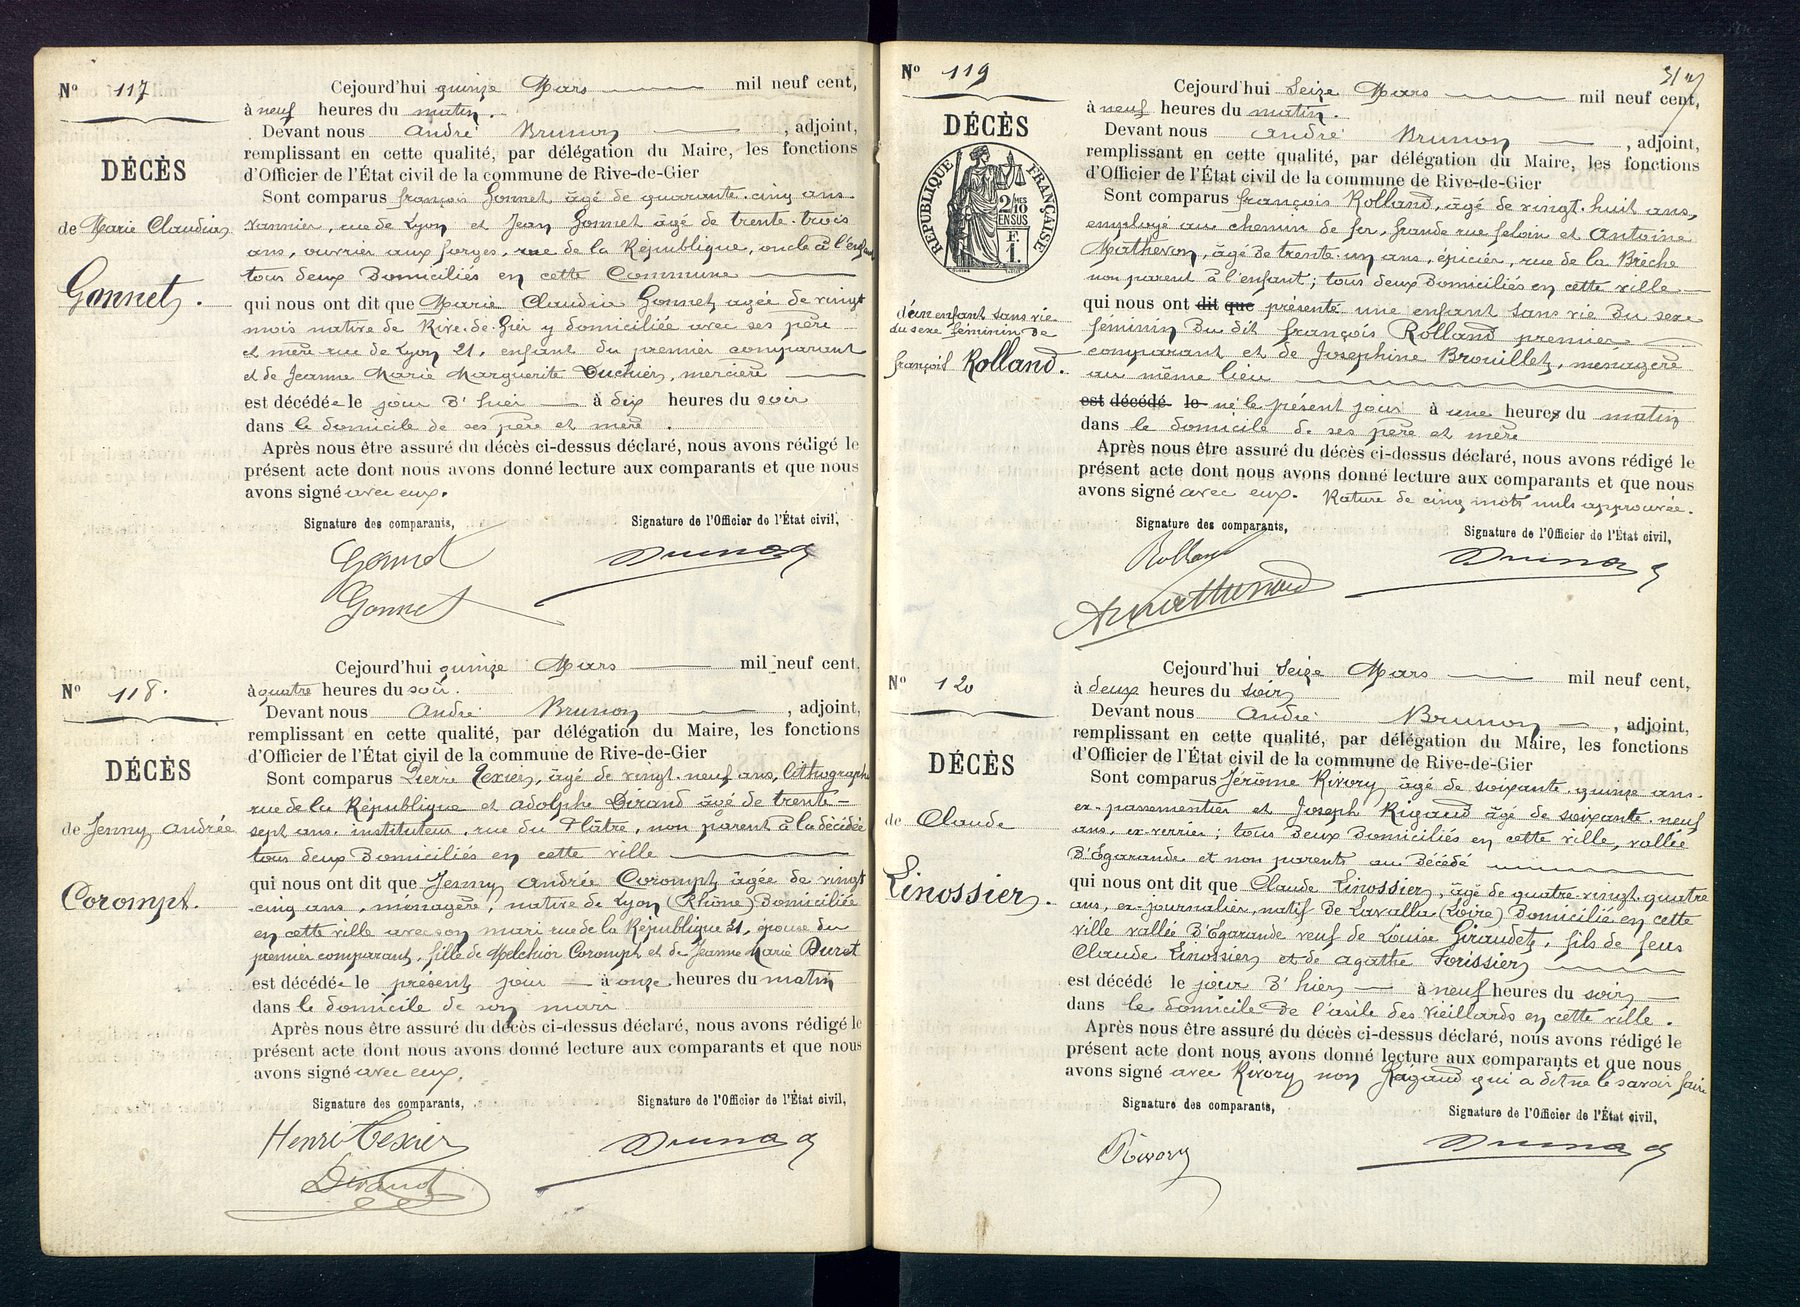 N° 117
DÉCÈS
de Marie Claudia
Gonnet.
Cejourd'hui quinze Mars mil neuf cent,
à neuf heures du matin.
Devant nous André Brunon, adjoint,
remplissant en cette qualité, par délégation du Maire, les fonctions
d'Officier de l'État civil de la commune de Rive-de-Gier
Sont comparus françois Gonnet, âgé de quarante-cinq ans
vannier, rue de Lyon et Jean Gonnet âgé de trente-trois
ans, ouvrier aux forges, rue de la République, oncle à l'enfant
tous deux domiciliés en cette Commune
qui nous ont dit que Marie Claudia Gonnet, agée de vingt
mois native de Rive-de-Gier y domiciliée avec ses père
et mère rue de Lyon 21, enfant du premier comparant
et de Jeanne Marie Marguerite Duchier, mercière
est décédée le jour d'hier à dix heures du soir
dans le domicile de ses père et mère.
Après nous être assuré du décès ci-dessus déclaré, nous avons rédigé le
présent acte dont nous avons donné lecture aux comparants et que nous
avons signé avec eux.
Signature des comparants, Signature de l'Officier de l'État civil,
Gonnet Brunon
Gonnet
N° 118.
DÉCÈS
de Jenny Andrée
Corompt.
Cejourd'hui quinze Mars mil neuf cent,
à quatre heures du soir.
Devant nous André Brunon, adjoint,
remplissant en cette qualité, par délégation du Maire, les fonctions
d'Officier de l'État civil de la commune de Rive-de-Gier
Sont comparus Pierre Texier, âgé de vingt-neuf ans, lithographe
rue de la République et Adolphe Dirand âgé de trente-
sept ans, instituteur, rue du Plâtre, non parent à la décédée
tous deux domiciliés en cette ville
qui nous ont dit que Jenny Andrée Corompt, âgée de vingt
cinq ans, ménagère, native de Lyon (Rhône) domiciliée
en cette ville avec son mari rue de la République 21, épouse du
premier comparant, fille de Melchior Corompt et de Jeanne Marie Duret
est décédée le présent jour à onze heures du matin
dans le domicile de son mari
Après nous être assuré du décès ci-dessus déclaré, nous avons rédigé le
présent acte dont nous avons donné lecture aux comparants et que nous
avons signé avec eux.
Signature des comparants, Signature de l'Officier de l'État civil,
Henri Texier Brunon
Dirand
N° 119
DÉCÈS
RÉPUBLIQUE FRANÇAISE
2/10 MES
EN SUS
F.
1.
d'un enfant sans vie
du sexe féminin de
françois Rolland.
Cejourd'hui Seize Mars mil neuf cent,
à neuf heures du matin.
Devant nous André Brunon, adjoint,
remplissant en cette qualité, par délégation du Maire, les fonctions
d'Officier de l'État civil de la commune de Rive-de-Gier
Sont comparus françois Rolland, âgé de vingt-huit ans,
employé au chemin de fer, Grande rue feloin et Antoine
Mathevon, âgé de trente-un ans, épicier, rue de la Brèche
non parent à l'enfant; tous deux domiciliés en cette ville
qui nous ont dit que présenté une enfant sans vie du sexe
féminin du dit françois Rolland premier
comparant et de Joséphine Brouillet, ménagère
au même lieu
est décédé le né le présent jour à une heures du matin
dans le domicile de ses père et mère
Après nous être assuré du décès ci-dessus déclaré, nous avons rédigé le
présent acte dont nous avons donné lecture aux comparants et que nous
avons signé avec eux. Rature de cinq mots nuls approuvée.
Signature des comparants, Signature de l'Officier de l'État civil,
Rolland Brunon
N° 120
DÉCÈS
de Claude
Linossier.
Cejourd'hui Seize Mars mil neuf cent,
à deux heures du soir
Devant nous André Brunon, adjoint,
remplissant en cette qualité, par délégation du Maire, les fonctions
d'Officier de l'État civil de la commune de Rive-de-Gier
Sont comparus Jérôme Rivory âgé de soixante-quinze ans
ex-passementier et Joseph Rigaud âgé de soixante-neuf
ans, ex-verrier; tous deux domiciliés en cette ville, vallée
d'Egarande et non parents au décédé
qui nous ont dit que Claude Linossier, âgé de quatre-vingt-quatre
ans, ex-journalier, natif de Lavalla (Loire) domicilié en cette
ville vallée d'Egarande veuf de Louise Giraudet, fils de feus
Claude Linossier et de Agathe Forissier
est décédé le jour d'hier à neuf heures du soir
dans le domicile de l'asile des vieillards en cette ville.
Après nous être assuré du décès ci-dessus déclaré, nous avons rédigé le
présent acte dont nous avons donné lecture aux comparants et que nous
avons signé avec Rivory non Rigaud qui a dit ne le savoir faire
Signature des comparants, Signature de l'Officier de l'État civil,
Rivory Brunon